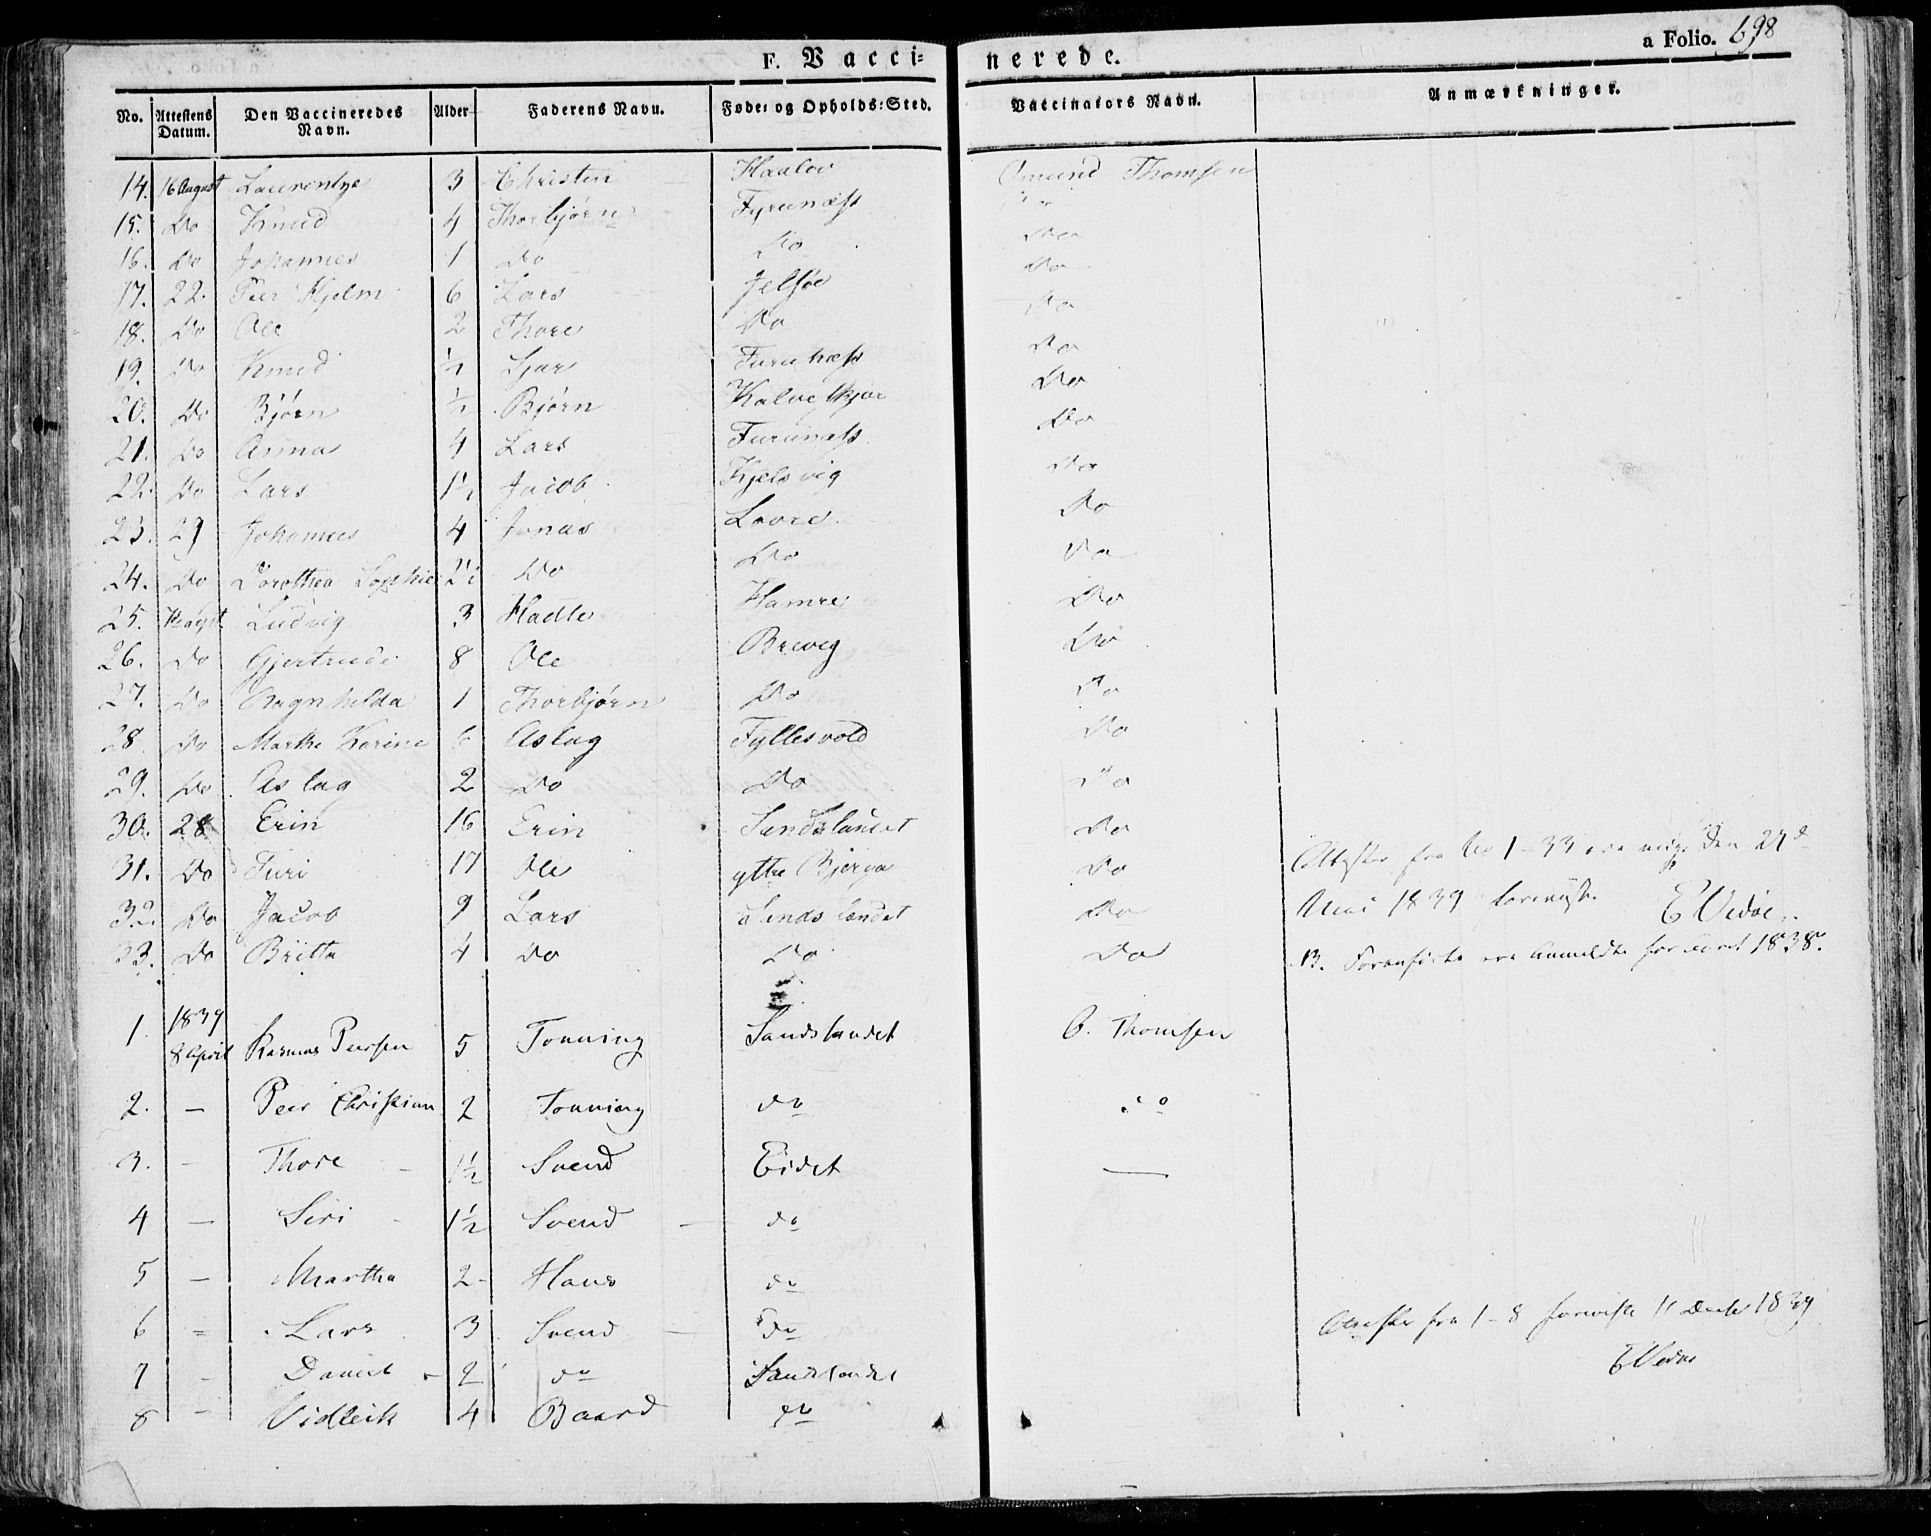 F. Vacci=nerede. a Folio. 698
No. Attestens Datum. Den Vaccineredes Navn. Alder Faderens Navn. Føde= og Opholds=Sted. Vaccinators Navn. Anmærkninger.
14. 16 August Laurentze 3 Christen Haalov Omund Thomsen
15. Do Knud 4 Thorbjørn Fyrunæss
16. Do Johannes 1 Do Do Do
17. 22. Peer Hjelm 6 Lars Jelsøe Do
18. Do Ole 2 Thore Do Do
19. Do Knud ½ Sjur Furunæss Do
20. Do Bjørn ½ Bjørn Kalve Do
21. Do Anna 4 Lars Furunæss Do
22. Do Lars 1½ Jacob Kjelsvig Do
23. 27 Johannes 4 Jonas Lovre Do
24. Do Dorothea Sophie 2½ Do Do Do
25. Ludvig 3 Hadle Hamre Do
26. Do Gjertrude 8 Ole Breveg Do
27. Do Ragnhilda 1 Thorbjørn Do Do
28 Do Marthe Karine 6 Aslag Fyllesvold Do
29. Do Aslag 2 Do Do Do
30. 28 Erin 16 Erin Sandslandet Do
31. Do Turi 17 Ole ytre Bjerga Do Attester fra No 1-33 ere mig den 27de
32. Do Jacob 9 Lars Sandslandet Do Mai 1839 foreviste E Vidsie
33. Do Britta 4 Do Do Do 13. Foranførte ere anmeldte for Aaret 1838.
1. 1839 8 April Rasmus Peersen 5 Tonning Sandslandet O. Thomsen
2. — Peer Christian 2 Tonning do do
3. - Thore 1½ Svend Eidet —
4 — Siri 1½ Svend do
5 — Martha 2- Hans do
6 = Lars 3 Svend do Attester fra 1-8 foreviste 11 Decbr 1839
7 - Daniel 2 do Sandslandet
8 - Vidleik 4 Baard do